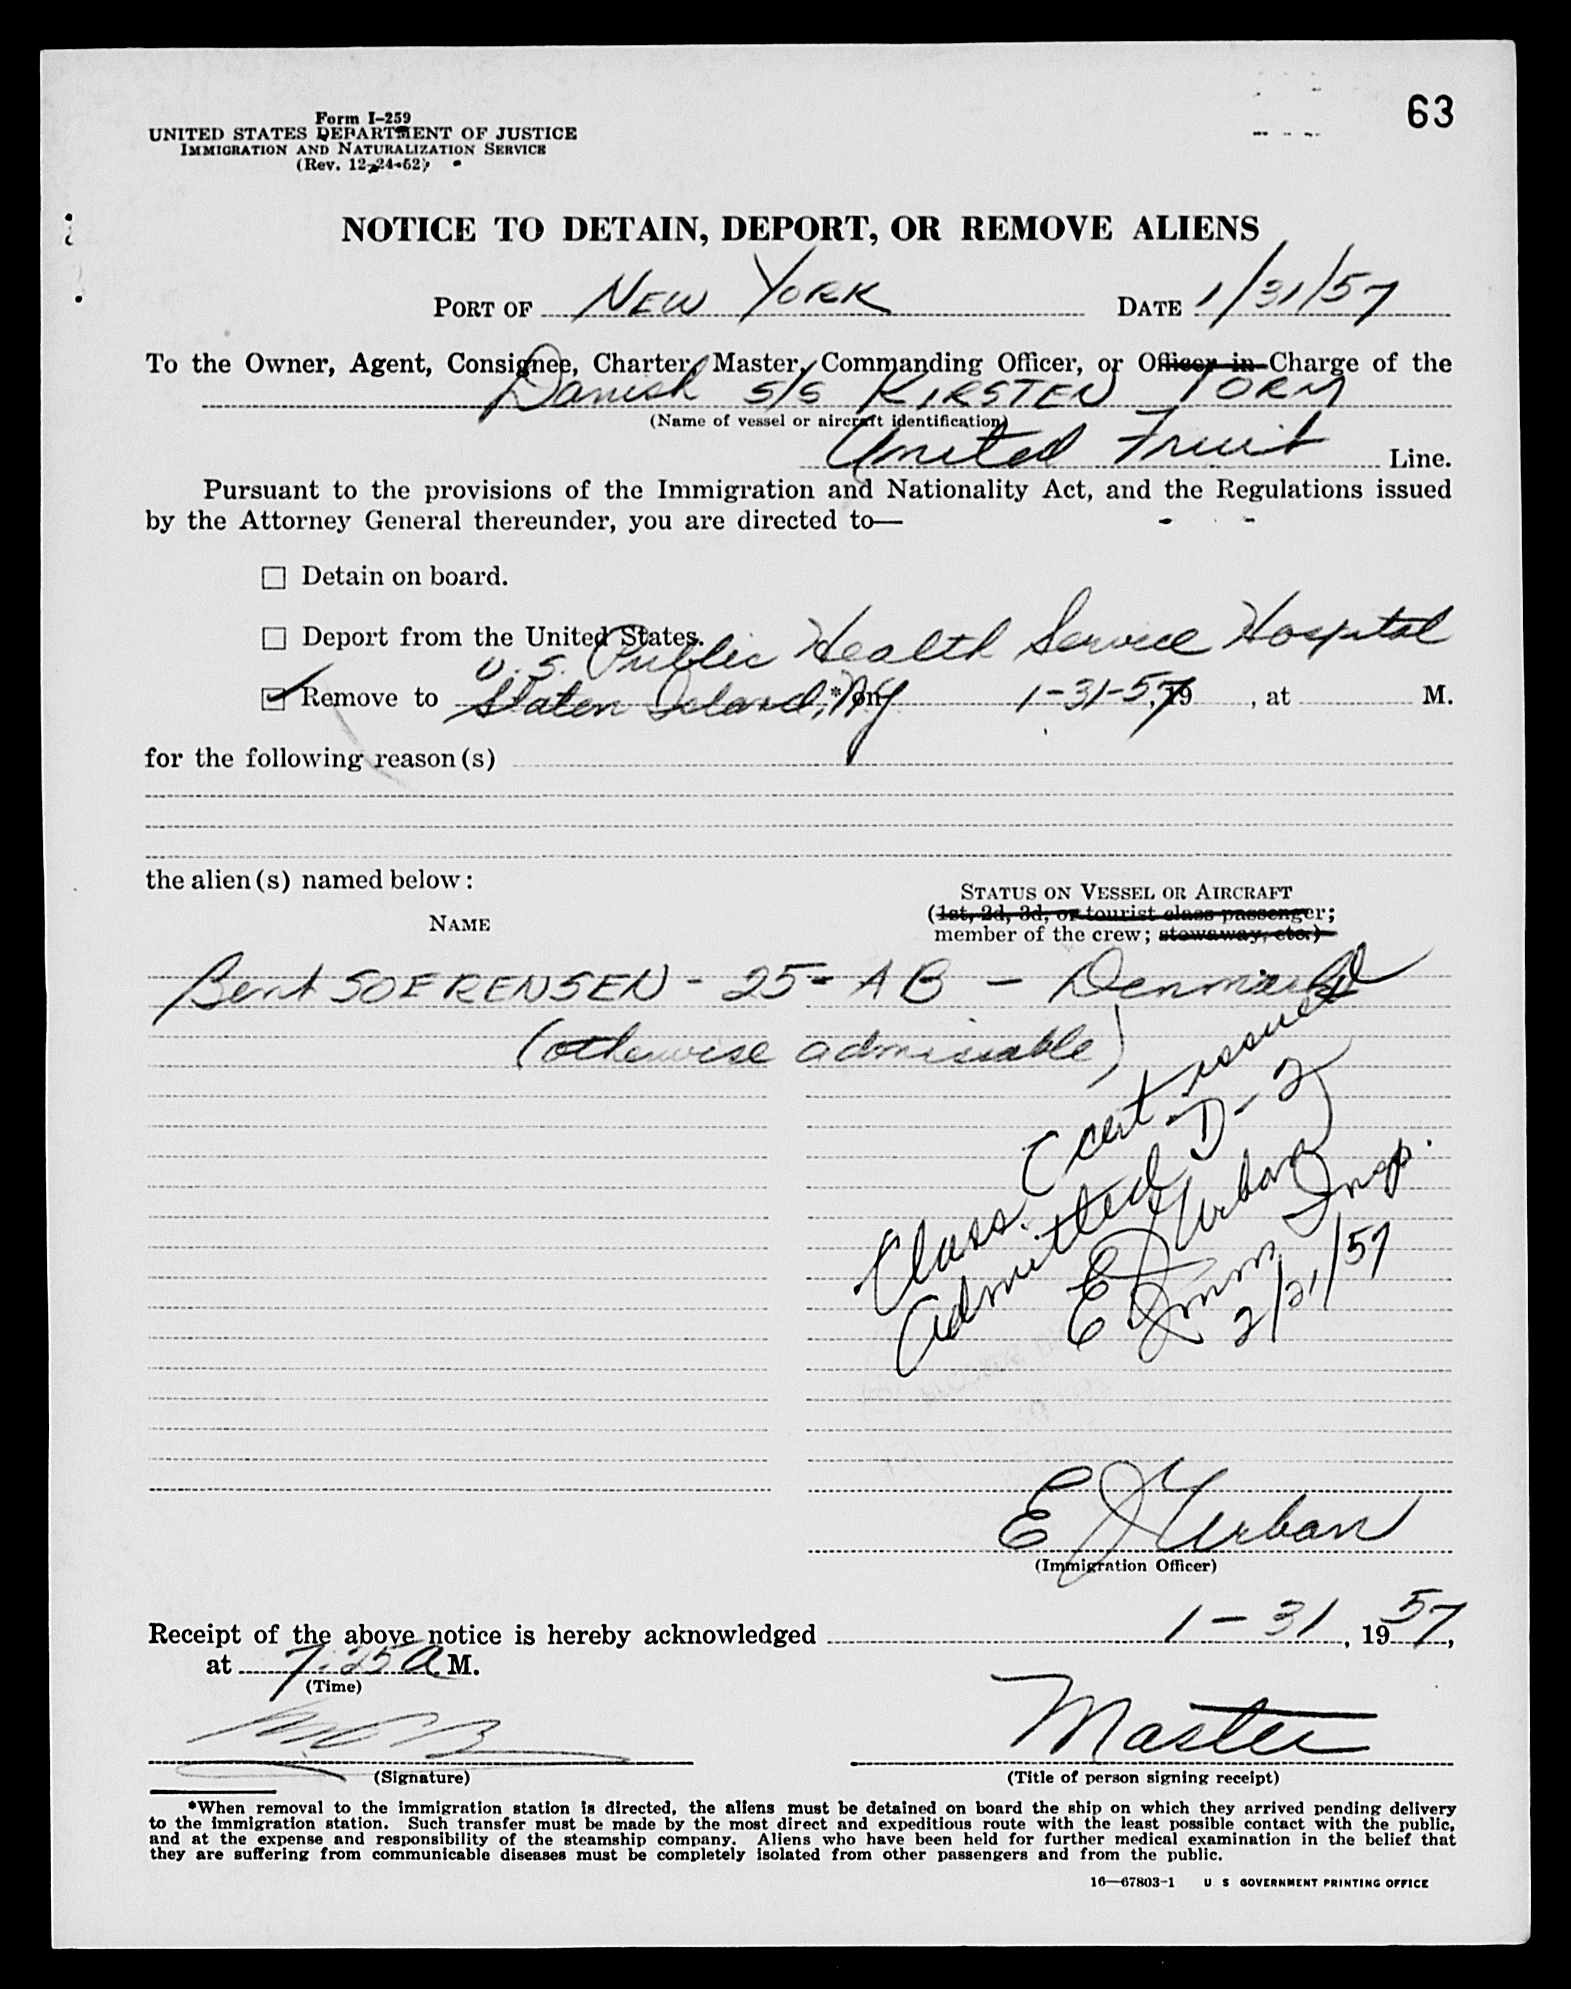 63
Form I-259
UNITED STATES DEPARTMENT OF JUSTICE
IMMIGRATION AND NATURALIZATION SERVICE
(Rev. 12-24-52)
NOTICE TO DETAIN, DEPORT, OR REMOVE ALIENS
PORT OF NEW YORK DATE 1/31/57
To the Owner, Agent, Consignee, Charter, Master, Commanding Officer, or Officer in Charge of the
Danish S/S KIRSTEN TORM
(Name of vessel or aircraft identification)
United Fruit Line.
Pursuant to the provisions of the Immigration and Nationality Act, and the Regulations issued
by the Attorney General thereunder, you are directed to—
☐ Detain on board.
☐ Deport from the United States.
U.S. Public Health Service Hospital
☑ Remove to Staten Island, NY * on 1-31-57, 19 , at M.
for the following reason(s)
the alien(s) named below:
STATUS ON VESSEL OR AIRCRAFT
(1st, 2d, 3d, or tourist class passenger;
NAME
member of the crew; stowaway, etc.)
Bent SOERENSEN - 25 - AB - Denmark
(otherwise admissable)
Class C cert issued
Admitted D-2
E J Urban
Imm Insp.
2/21/57
E J Urban
(Immigration Officer)
Receipt of the above notice is hereby acknowledged 1-31, 1957,
at 7:25 A M.
(Time)
Master
(Signature) (Title of person signing receipt)
*When removal to the immigration station is directed, the aliens must be detained on board the ship on which they arrived pending delivery
to the immigration station. Such transfer must be made by the most direct and expeditious route with the least possible contact with the public,
and at the expense and responsibility of the steamship company. Aliens who have been held for further medical examination in the belief that
they are suffering from communicable diseases must be completely isolated from other passengers and from the public.
16—67803-1 U S GOVERNMENT PRINTING OFFICE